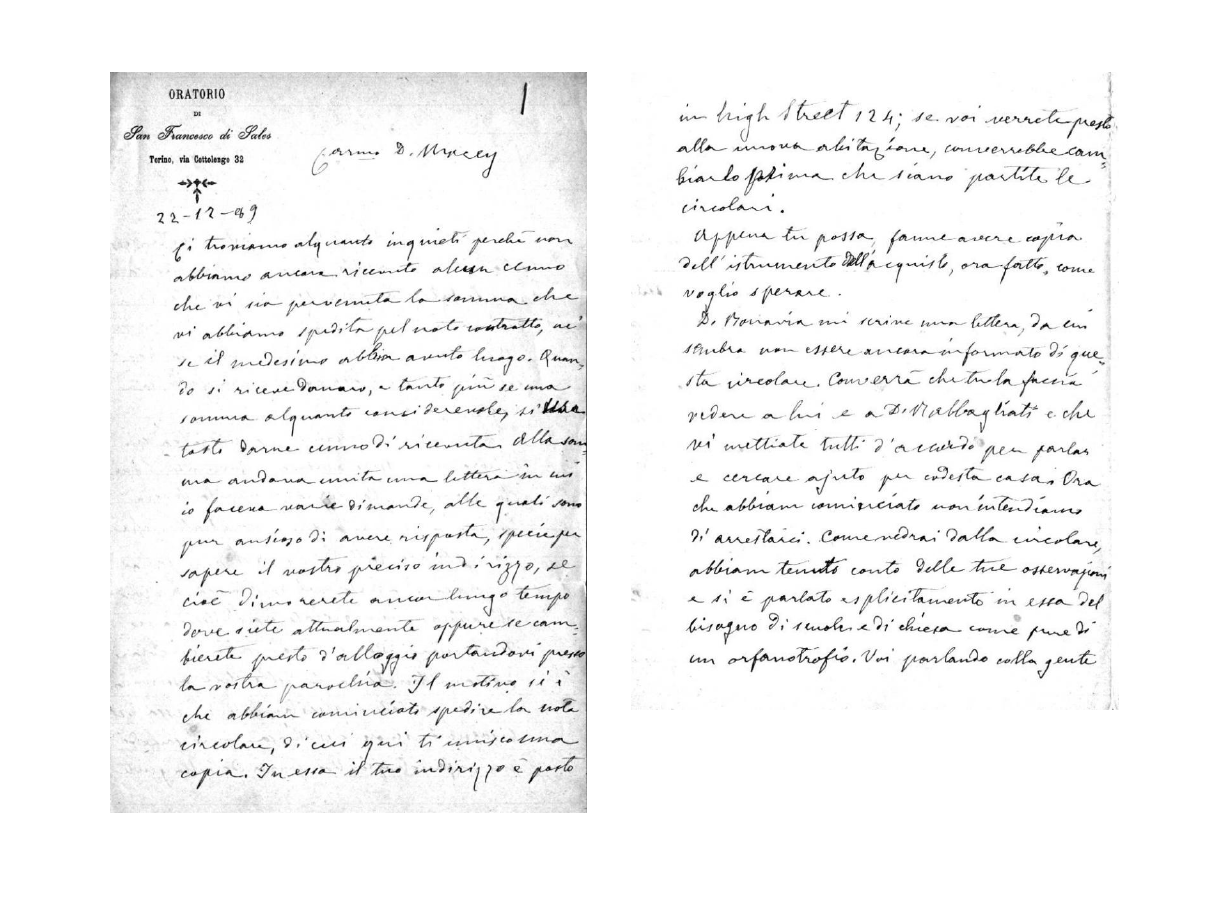 ORATORIO
DI
San Francesco di Sales
Torino, via Cottolengo 32
Carmo D. Macey
22-12-89
Ci troviamo alquanto inquieti perchè non
abbiamo ancora ricevuto alcun cenno
che vi sia pervenuta la somma che
vi abbiamo spedita pel noto contratto, nè
se il medesimo abbia avuto luogo. Quan=
do si riceve danaro, e tanto più se una
somma alquanto considerevole, si
tosto darne cenno di ricevuta. Alla som
ma andava unita una lettera in cui
io faceva varie dimande, alle quali sono
pur ansioso di avere risposta, specie per
sapere il vostro preciso indirizzo, se
cioè dimorerete ancor lungo tempo
dove siete attualmente oppure se cam=
bierete presto d'alloggio portandovi presso
la vostra parochia. Il motivo si è
che abbiam cominciato spedire la nota
circolare, di cui qui ti unisco una
copia. In essa il tuo indirizzo è posto
in high Street 124; se voi verrete presto
alla nuova abitazione, converrebbe cam=
biarlo prima che siano partite le
circolari.
Appena tu possa, fanne avere copia
dell'istrumento dell'acquisto, ora fatto, come
voglio sperare.
D. Bonavia mi scrive una lettera, da cui
sembra non essere ancora informato di que=
sta circolare. Converrà che tu la faccia
vedere a lui e a D. Rabbagliati e che
vi mettiate tutti d'accordo per parlar
e cercare ajuto per codesta casa. Ora
che abbiam cominciato non intendiamo
di arrestarci. Come vedrai dalla circolare,
abbiam tenuto conto delle tue osservazioni
e si è parlato esplicitamente in essa del
bisogno di scuole e di chiesa come pure di
un orfanotrofio. Voi parlando colla gente